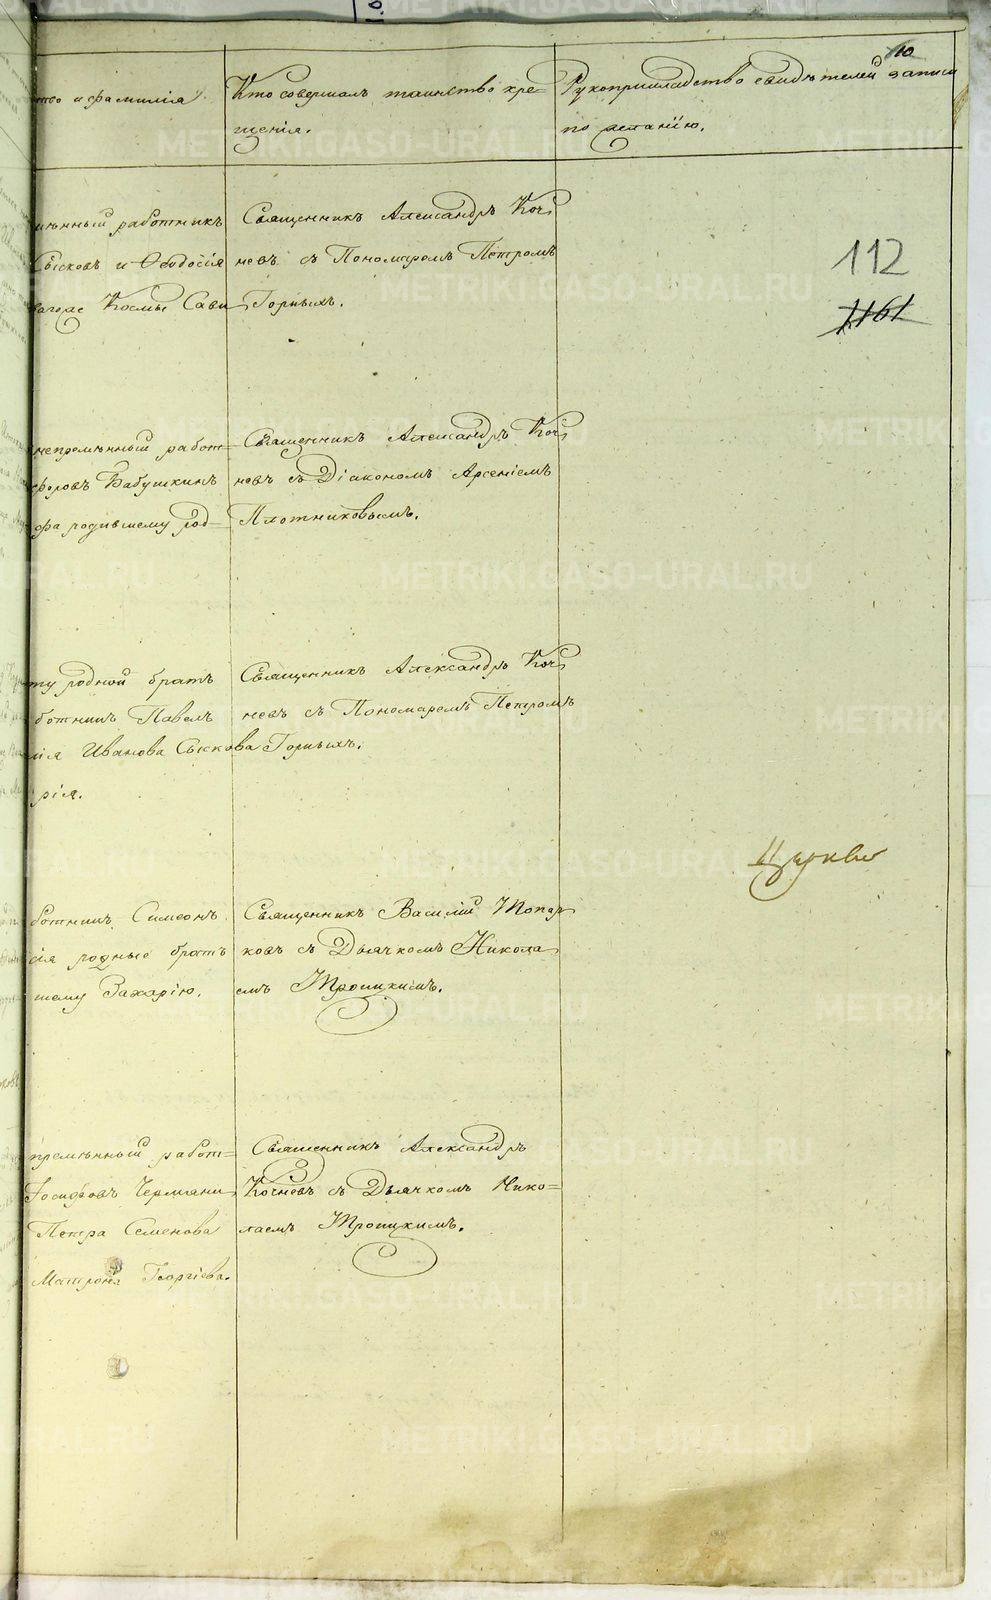 10
ство и фамилія.
Кто совершалъ таинство кре-
щенія.
Рукоприкладство свидѣтелей записи
по желанію.
мѣнный работникъ
Сысковъ и Ѳеодосія
Космы Сави
Священникъ Александръ Коч
невъ съ Пономаремъ Петромъ
Горныхъ.
112
1161
непремѣнный работ-
форовъ Бабушкинъ
фа родившему род-
Священникъ Александръ Коч
невъ съ Діакономъ Арсеніемъ
Плотниковымъ.
ту родной братъ
ботникъ Павелъ
нія Иванова Сыскова
рія.
Священникъ Александръ Коч
невъ съ Пономаремъ Петромъ
Горныхъ.
ботникъ Симеонъ
сія родные братъ
шему Захарію.
Священникъ Василій Топор
ковъ съ Дьячкомъ Никола
емъ Троицкимъ.
Церкви
премѣнный работ-
Іосифовъ
Петра Семенова
Матрона Георгіева.
Священникъ Александръ
Кочневъ съ Дьячкомъ Нико-
лаемъ Троицкимъ.
METRIKI.GASO-URAL.RU